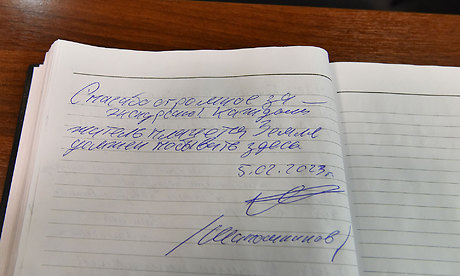 Спасибо огромное за
экскурсию! Каждый
житель планеты Земля
должен побывать здесь.
5.02.2023г.